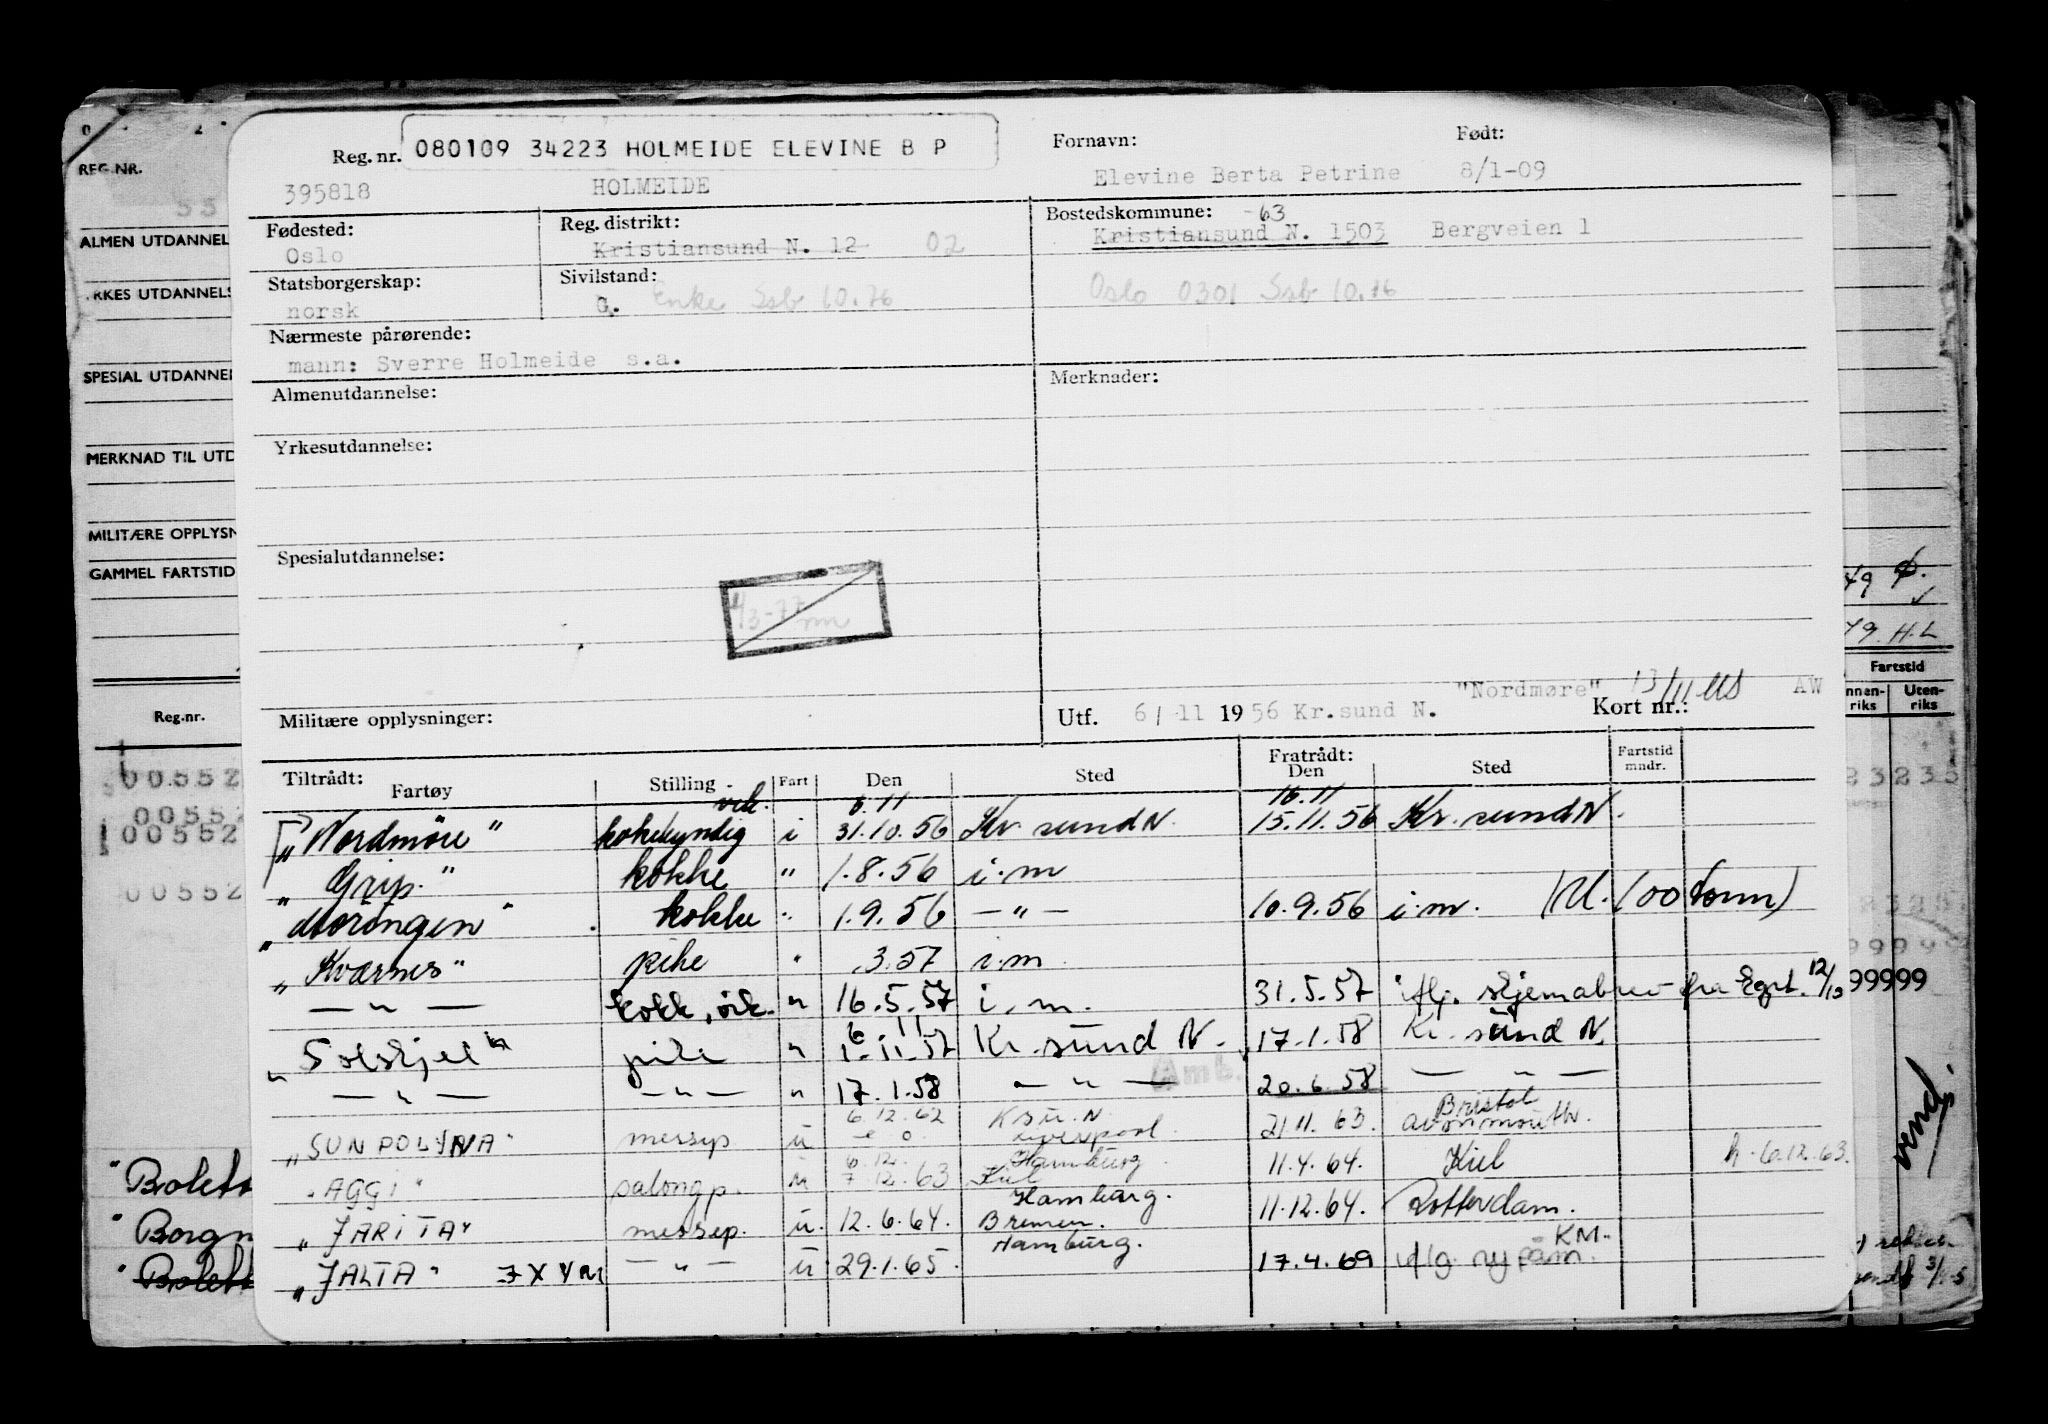 Reg. nr. 080109 34223 HOLMEIDE ELEVINE B P Fornavn: Født:
395818 HOLMEIDE Elevine Berta Petrine 8/1-09
Fødested: Reg. distrikt: Bostedskommune: -63
Oslo Kristiansund N. 12 02 Kristiansund N. 1503 Bergveien 1
Statsborgerskap: Sivilstand:
norsk G. Enke Ssb 10.76 Oslo 0301 Ssb 10.76
Nærmeste pårørende:
mann: Sverre Holmeide s.a.
Almenutdannelse: Merknader:
Yrkesutdannelse:
Spesialutdannelse:
"Nordmøre" 13/11 AW
Militære opplysninger: Utf. 6/ 11 19 56 Kr.sund N. Kort nr.:
Tiltrådt: Fartøy Stilling Fart Den Sted Fratrådt: Den Sted Fartstid mndr.
vik. 6.11 16.11
"Nordmøre" kokekyndig i 31.10.56 Kr. sund N. 15.11.56 Kr. sund N.
"Grip." kokke " 1.8.56 i.m
kokke " 1.9.56 — " — 10.9.56 i.m. (U. 100 tonn)
"Kværnes" pike " .3.57 i.m
— " — kokk, " 16.5.57 i.m. 31.5.57 12/13 99999
6.11
"Solskjel" pike " 1.11.57 Kr. sund N. 17.1.58 Kr. sund N.
— " — — " — " 17.1.58 — " — 20.6.58 — " —
6.12.62 K.su.N Bristol
"SUNPOLYNA" messep u Liverpool. 21.11.63. Avonmouth.
6.12. Hamburg
"AGGI" salongp. u 7.12.63 Kiel 11.4.64. Kiel h. 6.12.63.
Hamburg.
"JARITA" messep. u. 12.6.64. Bremen. 11.12.64. Rotterdam.
Hamburg. KM.
"JALTA" JXYM — " — u 29.1.65. 17.4.69 iflg. ny påm.
REG.NR.
ALMEN UTDANNEL
RKES UTDANNELS
SPESIAL UTDANNEL
MERKNAD TIL UTD
MILITÆRE OPPLYSN
GAMMEL FARTSTID
Reg.nr.
00552
00552
00552
00552
"Bolett
"Borgn
"Bolett
49
79. H.L
Fartstid
nnen-riks Uten-riks
23235
vend.